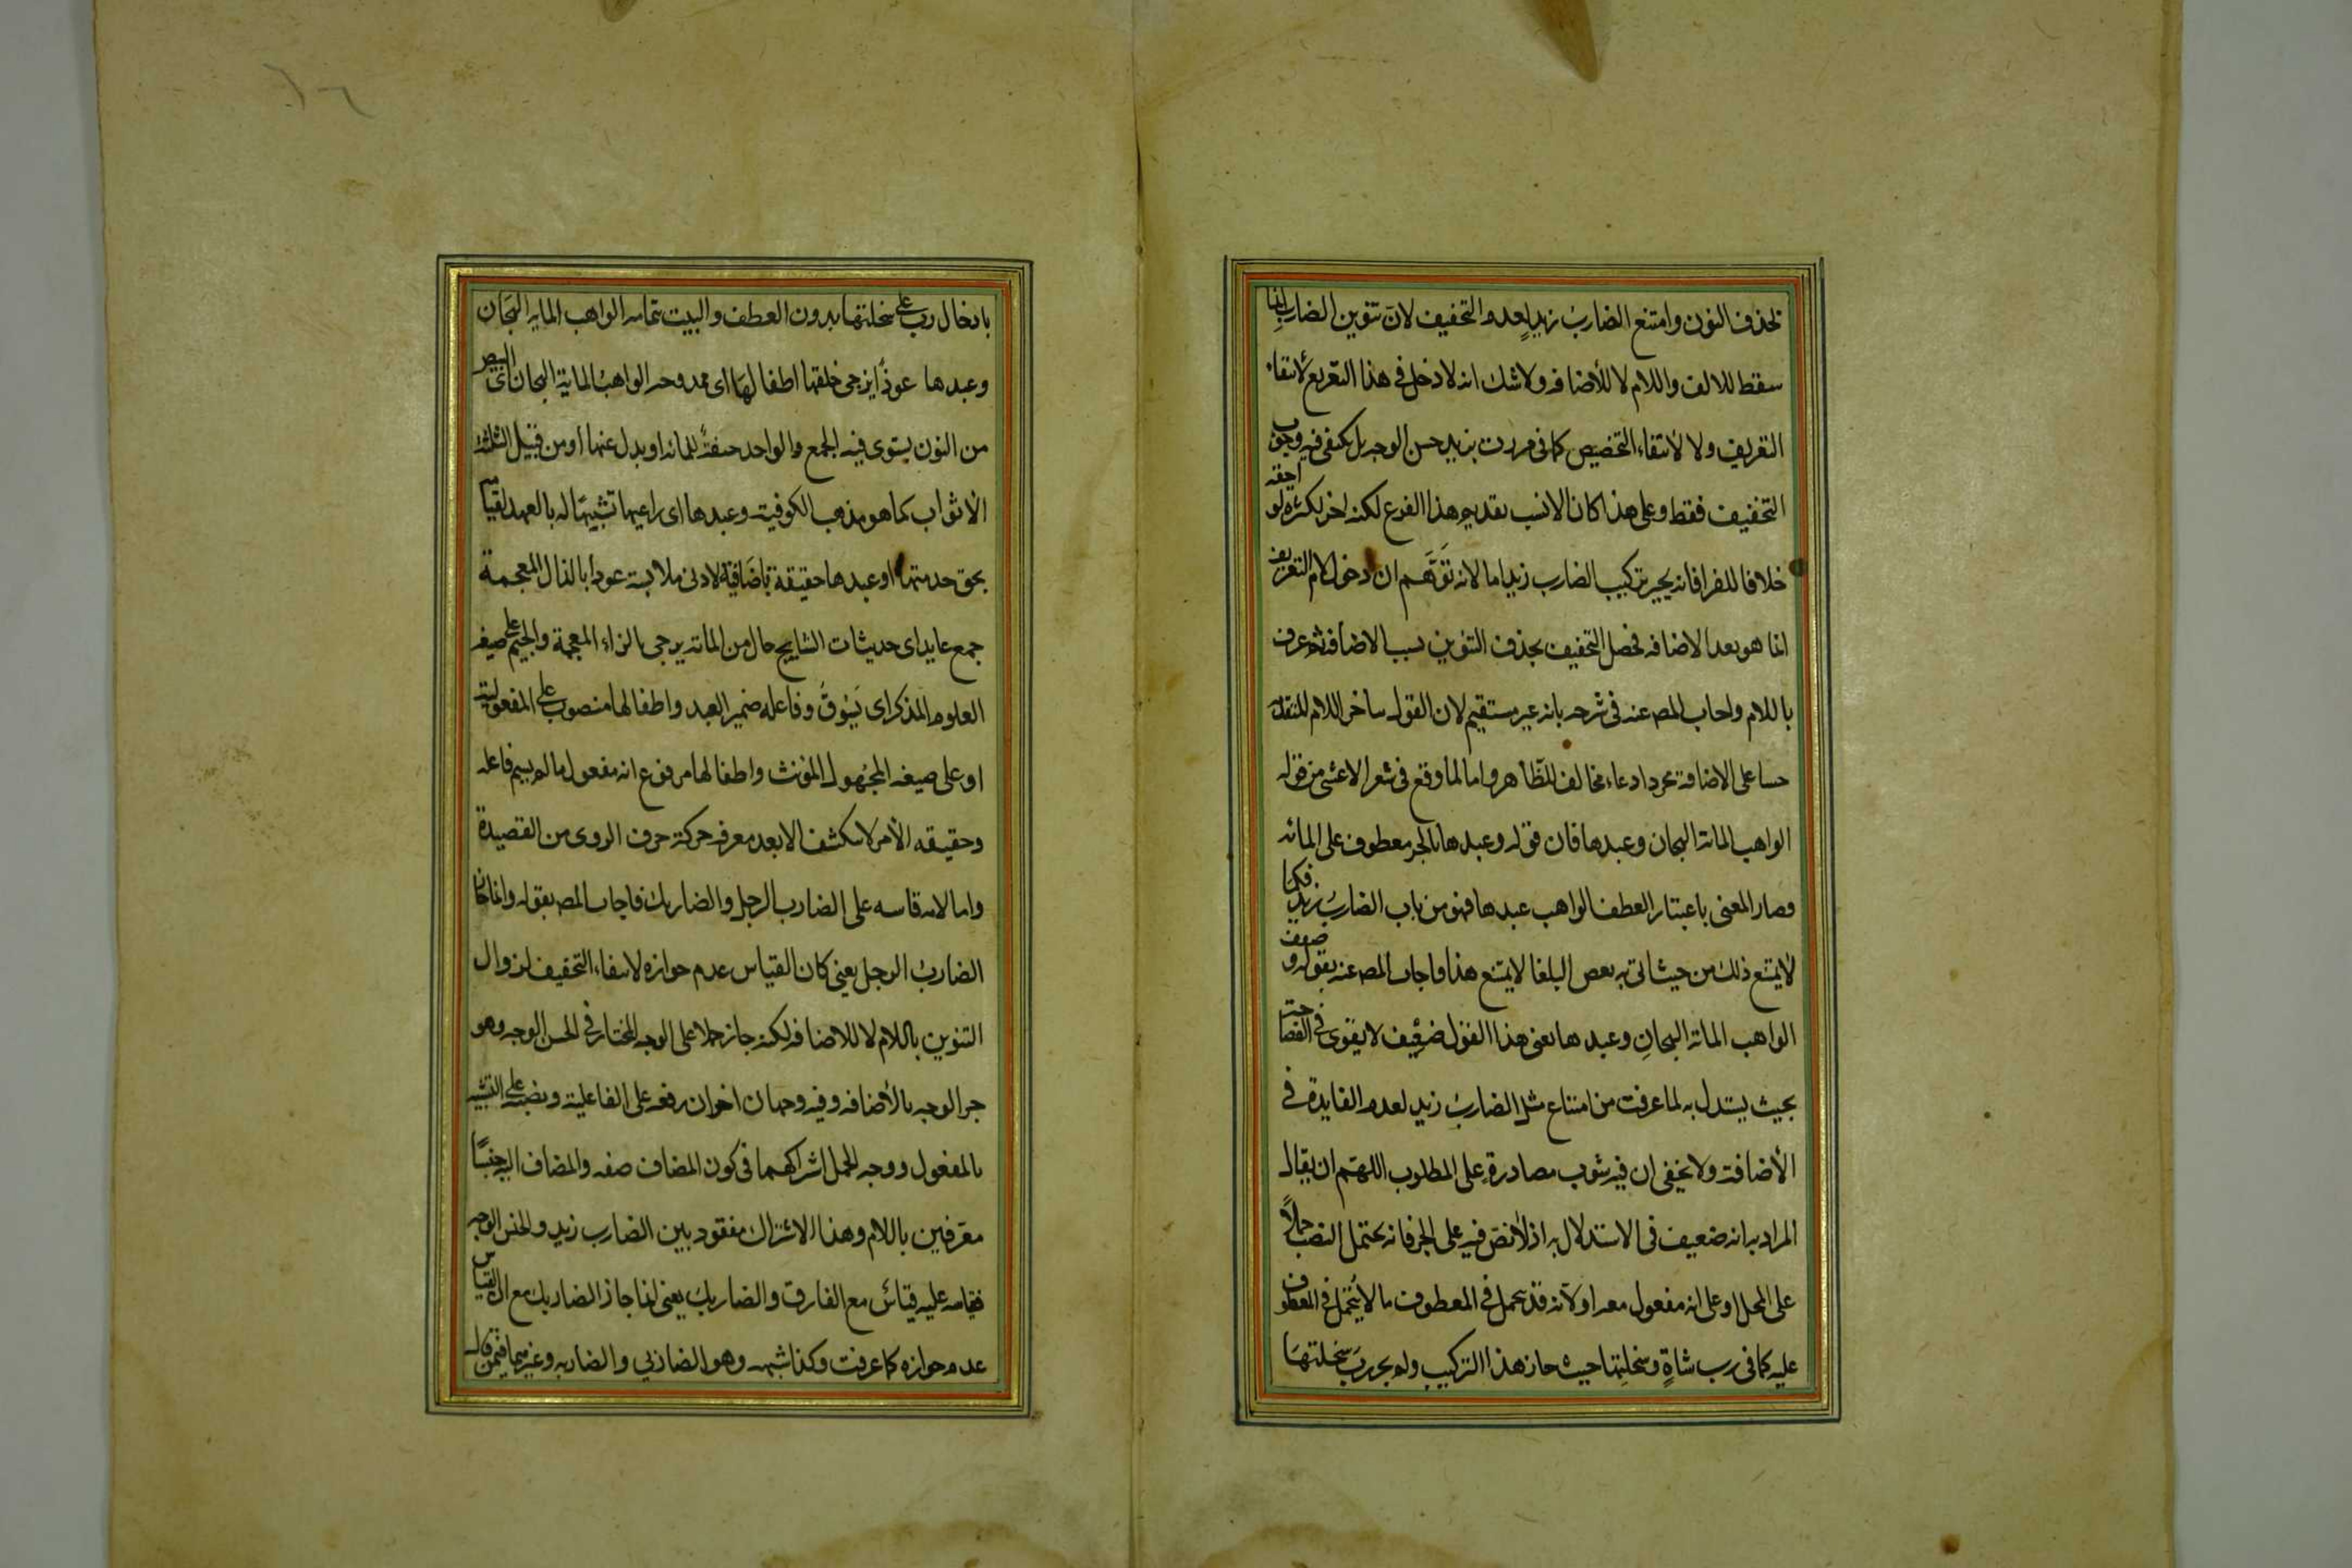 بحذف النون وامتنع الضارب زيد لعدم التخفيف لان تنوين الضارب انما
سقط للالف واللام لا للأضافه ولا شك انه لا دخل فى هذا التفريع لانتفاء
التعريف ولا لانتفاء التخصيص كما فى مررت بزيد حسن الوجه بل يكفى فيه وجوب
التخفيف فقط وعلى هذا كان الانسب تقديم هذا الفرع لكنه اخر لكثرة لواحقه
خلافا للفرا فانه يجيز تركيب الضارب زيد اما لانه توهم ان دخول لام التعريف
انما هو بعد الاضافه فحصل التخفيف بحذف التنوين بسبب الاضافة ثم عرف
باللام واجاب المص عنه فى شرحه بانه غير مستقيم لان القول بتأخر اللام المتقدمه
حسا على الاضافة مجرد ادعاء مخالف للظاهر واما لما وقع فى شعر الاعشى من قوله
الواهب المائة الهجان وعبدها فان قوله وعبدها بالجر معطوف على المائه
وصار المعنى باعتبار العطف الواهب عبدها فهو من باب الضارب زيد فكما
لايمتنع ذلك من حيث اتى به بعض البلغا لايمتنع هذا واجاب المص عنه بقوله وضعف
الواهب المائة الهجان وعبدها يعنى هذا القول ضعيف لايقوى فى الفصاحة
بحيث يستدل به لما عرفت من امتناع مثل الضارب زيد لعدم الفايدة فى
الأضافة ولا يخفى ان فيه شوب مصادرة على المطلوب اللهم ان يقال
المراد به انه ضعيف فى الاستدلال به اذ لا نص فيه على الجر فانه يحتمل النصب حملاً
على المحل او على انه مفعول معه او لأنه قد يتحمل فى المعطوف ما لا يتحمل فى المعطوف
عليه كما فى رب شاةٍ وسخلتها حيث جاز هذا التركيب ولم يجز رب سخلتها
بادخال رب على سخلتها بدون العطف والبيت بتمامه الواهب المايه الهجان
وعبدها عوذاً يزجى خلفها اطفالها اى ممدوحه الواهب المائة الهجان اى البيض
من النون يستوى فيه الجمع والواحد صفةً للمائه او بدل عنها او من قبيل الثلثة
الاثواب كما هو مذهب الكوفية وعبدها اى راعيها تشبيها له بالعبد لقيامه
بحق خدمتها او عبدها حقيقة باضافته لادنى ملابسة عوذا بالذال المعجمة
جمع عايذ اى حديثات النتايج حال من المائة يزجى بالزاء المعجمة والجيم على صيغه
المعلوم المذكر اى يَسُوقُ وفاعله ضمير العبد واطفالها منصوب على المفعولية
او على صيغه المجهول المؤنث واطفالها مرفوع انه مفعول ما لم يسم فاعله
وحقيقه الأمر لا تنكشف الا بعد معرفه حركة حرف الروى من القصيدة
واما لانه قاسه على الضارب الرجل والضاربك فاجاب المص بقوله وانما جاز
الضاربُ الرجل يعنى كان القياس عدم جوازه لانتفاء التخفيف لزوال
التنوين باللام لا للاضافه لكنه جاز حملا على الوجه المختار فى الحسن الوجه وهو
جر الوجه بالأضافه وفيه وجهان اخران رفعه على الفاعلية ونصبه على التشبيه
بالمفعول ووجه الحمل اشتراكهما فى كون المضاف صفه والمضاف اليه جنسًا
معرفين باللام وهذا الاشتراك مفقود بين الضارب زيد والحسن الوجه
فقياسه عليه قياس مع الفارق والضاربك يعنى انما جاز الضاربك مع ان القياس
عدم جوازه كما عرفت وكذا شبهه وهو الضاربى والضاربه وغيرهما فيمن قال